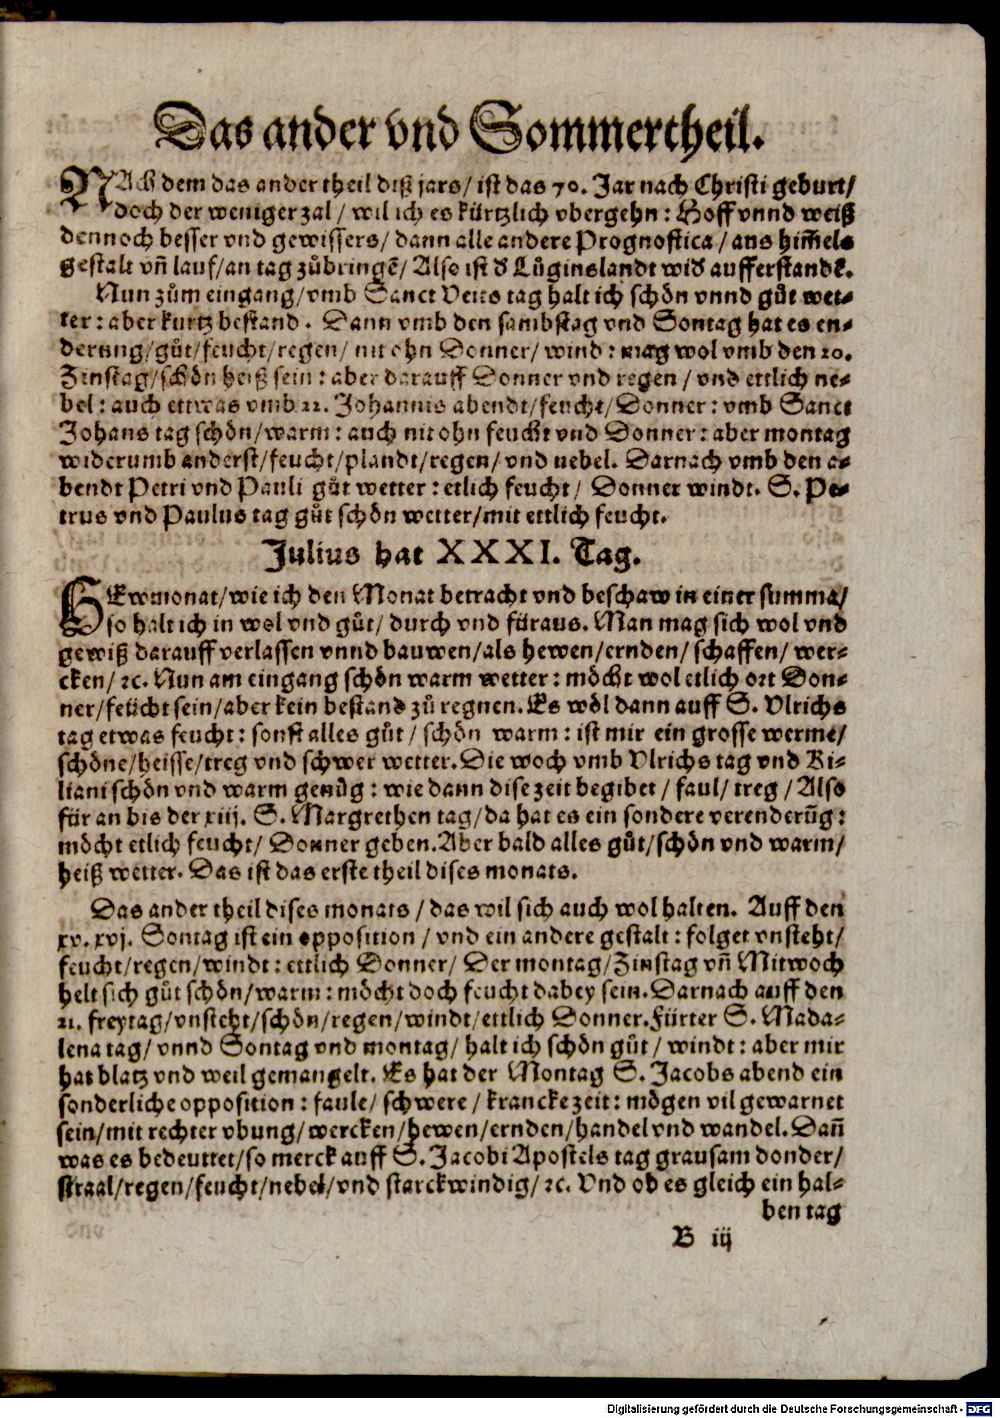 Das ander vnd Sommertheil.
NAch dem das ander theil diß jars/ ist das 70. Jar nach Christi geburt/
doch der weniger zal / wil ich es kürtzlich vbergehn : Hoff vnnd weiß
dennoch besser vnd gewissers/ dann alle andere Prognostica / ans him̃els
gestalt vñ lauf/an tag zůbringẽ/ Also ist d Lůginslandt wid aufferstandẽ.
Nun zům eingang/vmb Sanct Veits tag halt ich schön vnnd gůt wet-
ter : aber kurtz bestand . Dann vmb den sambstag vnd Sontag hat es en-
derung/gůt/feucht/regen/ nit ohn Donner/ wind : mag wol vmb den 20.
Zinstag/schön heiß sein : aber darauff Donner vnd regen / vnd ettlich ne-
bel : auch ettwas vmb 22. Johannis abendt/feucht/Donner : vmb Sanct
Johans tag schön/warm : auch nit ohn feucht vnd Donner : aber montag
widerumb anderst/feucht/plandt/regen/ vnd nebel. Darnach vmb den a-
bendt Petri vnd Pauli gůt wetter : etlich feucht/ Donner windt. S. Pe-
trus vnd Paulus tag gůt schön wetter/mit ettlich feucht.
Julius hat XXXI. Tag.
HEwmonat/wie ich den Monat betracht vnd beschaw in einer summa/
so halt ich in wol vnd gůt/ durch vnd füraus. Man mag sich wol vnd
gewiß darauff verlassen vnnd bauwen/als hewen/ernden/ schaffen/ wer-
cken/ ꝛc. Nun am eingang schön warm wetter : möcht wol etlich ort Don-
ner/feücht sein/aber kein bestand zů regnen. Es wöl dann auff S. Vlrichs
tag etwas feucht : sonst alles gůt / schön warm : ist mir ein grosse werme/
schöne/heisse/treg vnd schwer wetter. Die woch vmb Vlrichs tag vnd Ki-
liani schön vnd warm genůg : wie dann dise zeit begibet / faul/ treg / Also
für an bis der xiij. S. Margrethen tag/da hat es ein sondere verenderũg :
möcht etlich feucht/ Donner geben. Aber bald alles gůt/schön vnd warm/
heiß wetter. Das ist das erste theil dises monats.
Das ander theil dises monats / das wil sich auch wol halten. Auff den
xv. xvj. Sontag ist ein opposition / vnd ein andere gestalt : folget vnsteht/
feucht/regen/windt : ettlich Donner/ Der montag/Zinstag vñ Mitwoch
helt sich gůt schön/warm : möcht doch feucht dabey sein. Darnach auff den
21. freytag/vnsteht/schön/regen/windt/ettlich Donner. Fürter S. Mada-
lena tag/ vnnd Sontag vnd montag/ halt ich schön gůt / windt : aber mir
hat blatz vnd weil gemangelt. Es hat der Montag S. Jacobs abend ein
sonderliche opposition : faule/ schwere / krancke zeit : mögen vil gewarnet
sein/mit rechter vbung/wercken/hewen/ernden/handel vnd wandel. Dañ
was es bedeuttet/so merck auff S. Jacobi Apostels tag grausam donder/
straal/regen/feucht/nebel/vnd starckwindig/ ꝛc. Vnd ob es gleich ein hal-
ben tag
B iij
Digitalisierung gefördert durch die Deutsche Forschungsgemeinschaft - DFG